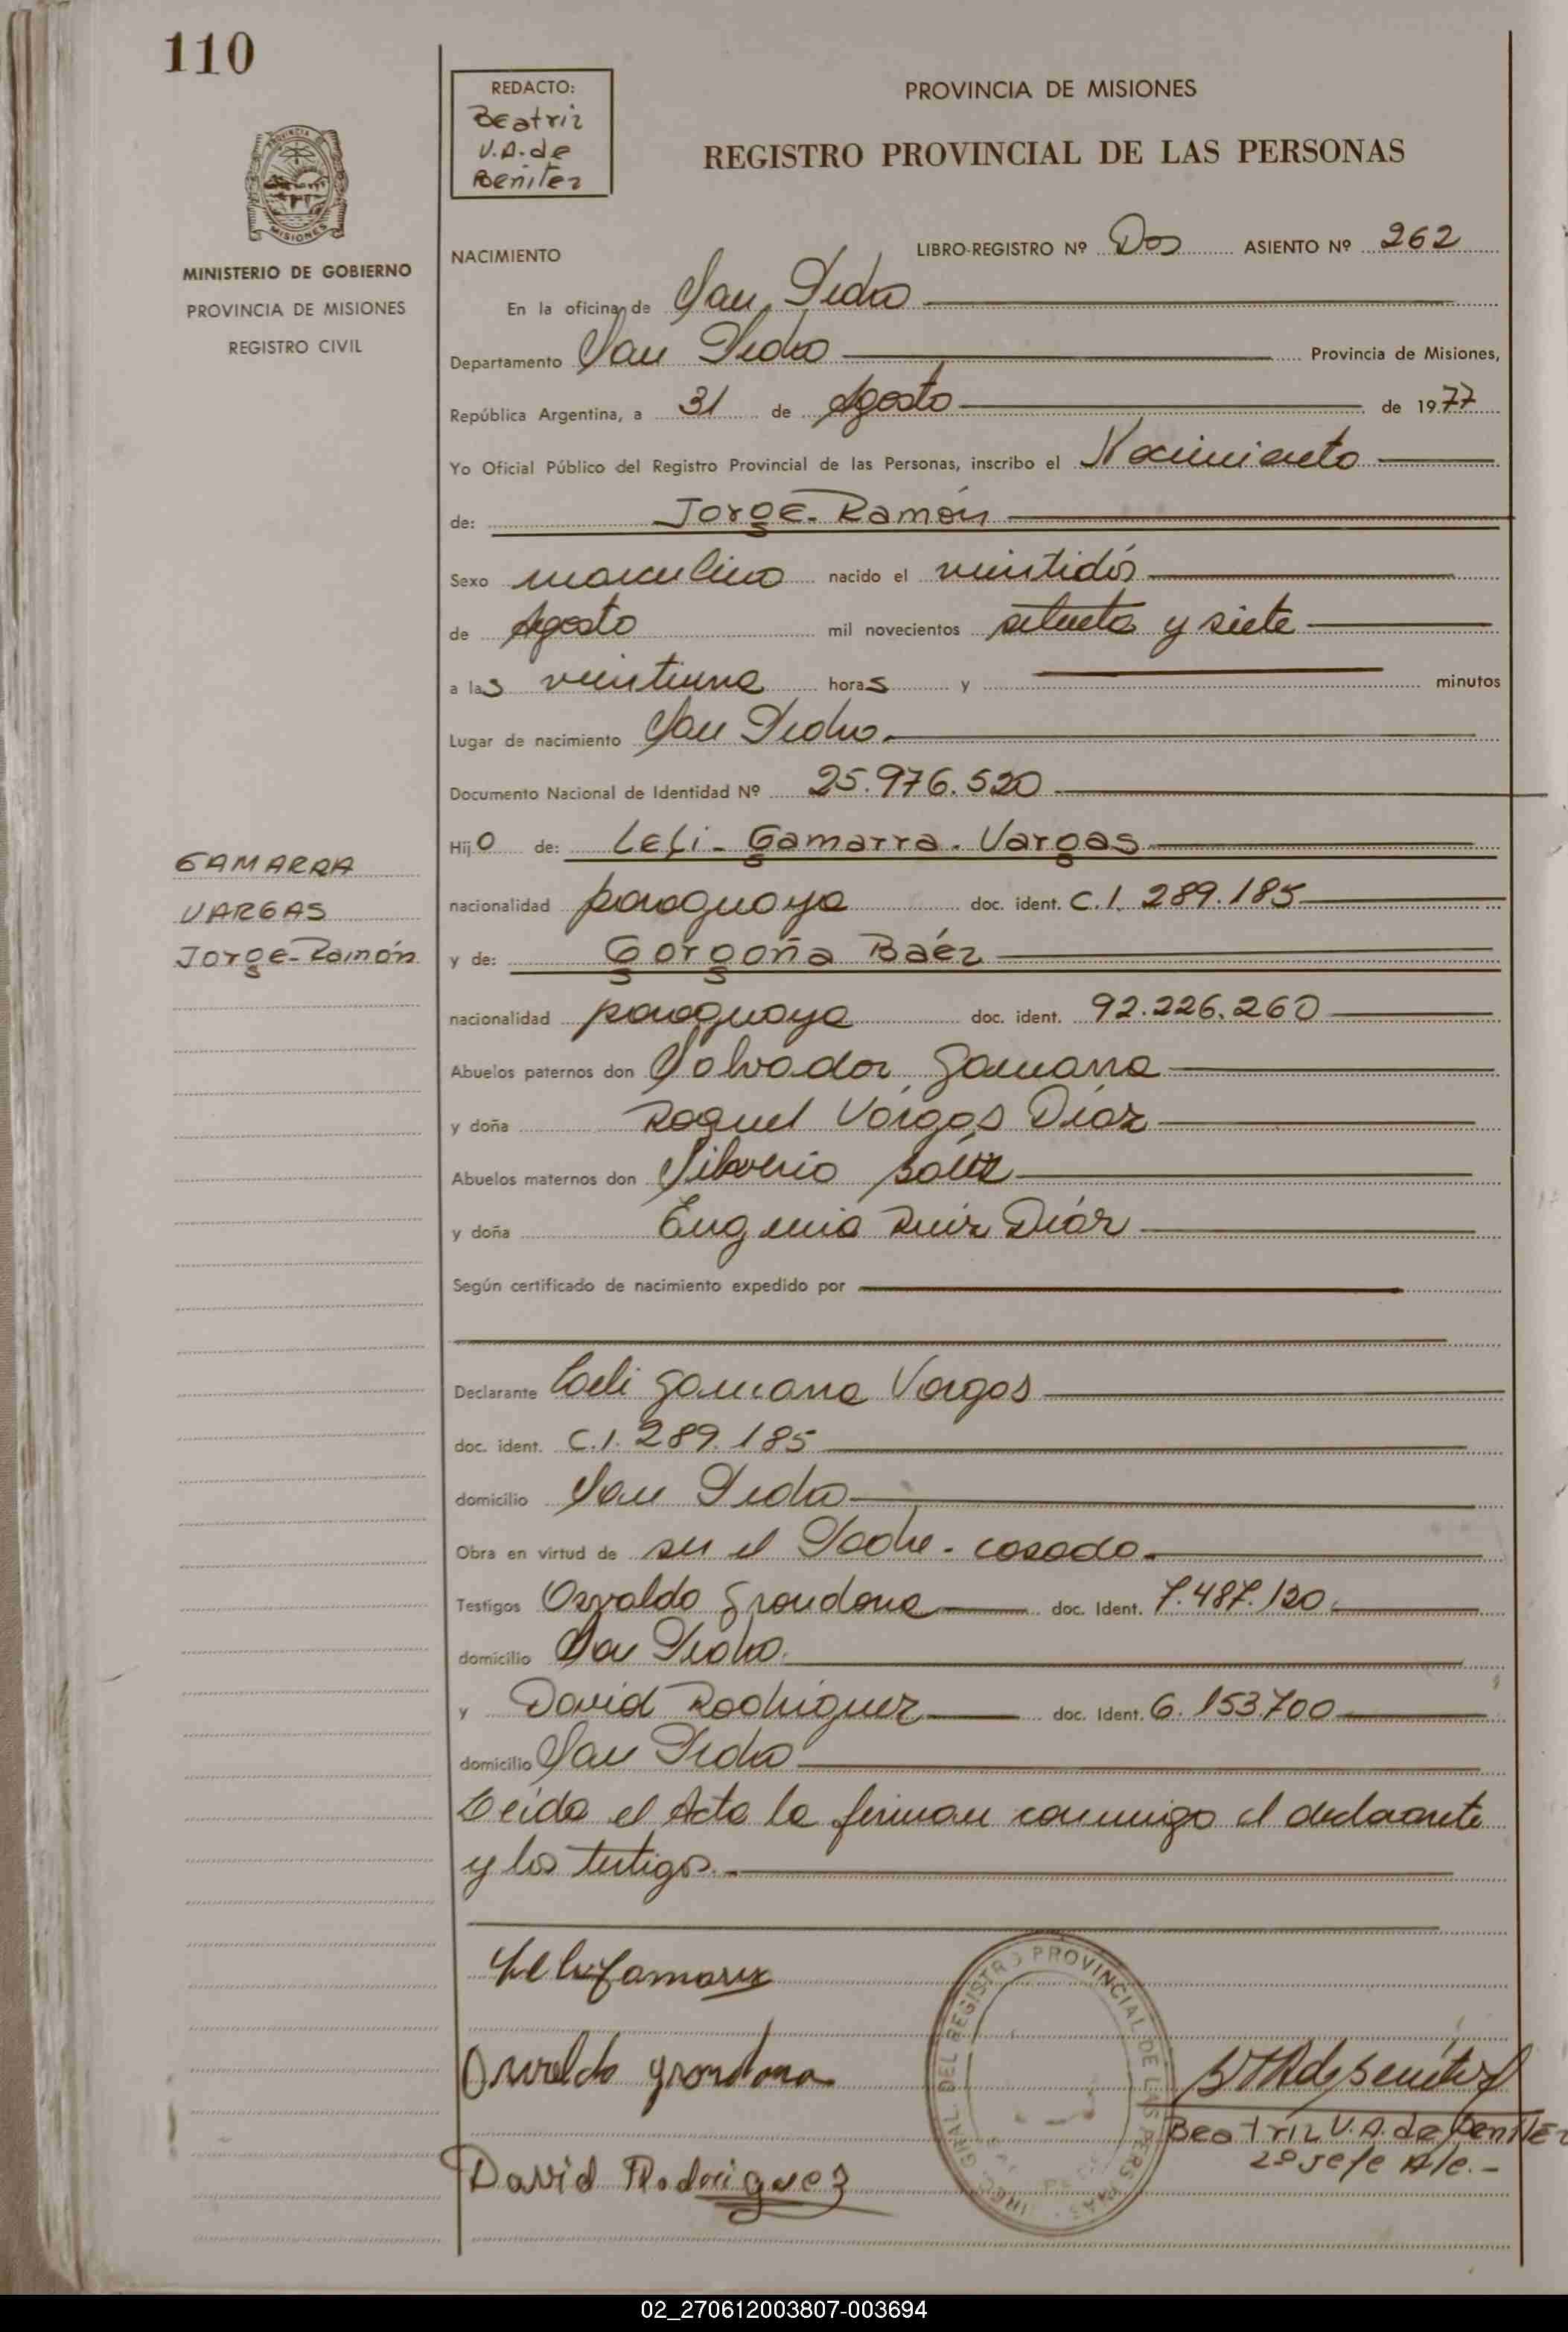 110
REDACTO:
Beatriz
V.A. de
Benitez
PROVINCIA DE MISIONES
REGISTRO PROVINCIAL DE LAS PERSONAS
PROVINCIA
MISIONES
MINISTERIO DE GOBIERNO
PROVINCIA DE MISIONES
REGISTRO CIVIL
LIBRO-REGISTRO Nº Dos ASIENTO Nº 262
NACIMIENTO
En la oficina de San Pedro
Departamento San Pedro Provincia de Misiones,
República Argentina, a 31 de Agosto de 1977
Yo Oficial Público del Registro Provincial de las Personas, inscribo el Nacimiento
de: Jorge-Ramón
Sexo masculino nacido el veintidós
de Agosto mil novecientos setenta y siete
a las veintiuna horas y minutos
Lugar de nacimiento San Pedro.
Documento Nacional de Identidad Nº 25.976.520
Hijo de: Leli - Gamarra - Vargas
GAMARRA
VARGAS
Jorge-Ramón
nacionalidad paraguaya doc. ident. C.I. 289.185
y de: Gorgoña Báez
nacionalidad paraguaya doc. ident. 92.226.260
Abuelos paternos don Salvador Gamarra
y doña Raquel Vargas Díaz
Abuelos maternos don Silverio Báez
y doña Eugenia Ruiz Díaz
Según certificado de nacimiento expedido por
Declarante Leli Gamarra Vargas
doc. ident. C.I. 289.185
domicilio San Pedro
Obra en virtud de ser el Padre - casado.
Testigos Osvaldo Grondona doc. Ident. 7.487.120.
domicilio San Pedro.
y David Rodriguez doc. Ident. 6.153.700
domicilio San Pedro
Leída el Acta la firman conmigo el declarante
y los testigos.-
Osvaldo Grondona
David Rodriguez
DIREC. GRAL. DEL REGISTRO PROVINCIAL DE LAS PERSONAS
Beatriz V.A. de Benitez
2º Jefe A/c.-
02_270612003807-003694